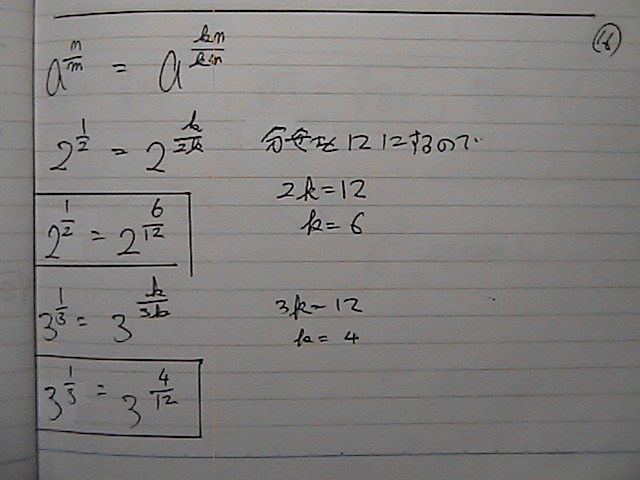 (16)
a^{n/m} = a^{kn/km}
2^{1/2} = 2^{k/2k} 分母を12にするので
2k = 12
k = 6
2^{1/2} = 2^{6/12}
3^{1/3} = 3^{k/3k} 3k = 12
k = 4
3^{1/3} = 3^{4/12}